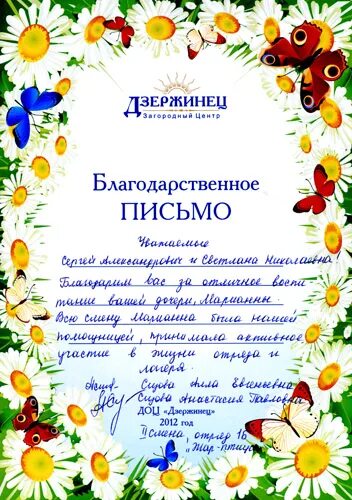 ДЗЕРЖИНЕЦ
Загородный Центр
Благодарственное
ПИСЬМО
Уважаемые
Сергей Александрович и Светлана Николаевна!
Благодарим вас за отличное воспи
тание вашей дочери, Марианны.
Всю смену Марианна была нашей
помощницей, принимала активное
участие в жизни отряда и
лагеря.
Алла Евгеньевна
Анастасия Павловна
ДОЦ «Дзержинец»
2012 год
II смена, отряд 1б
"Жар-птица"